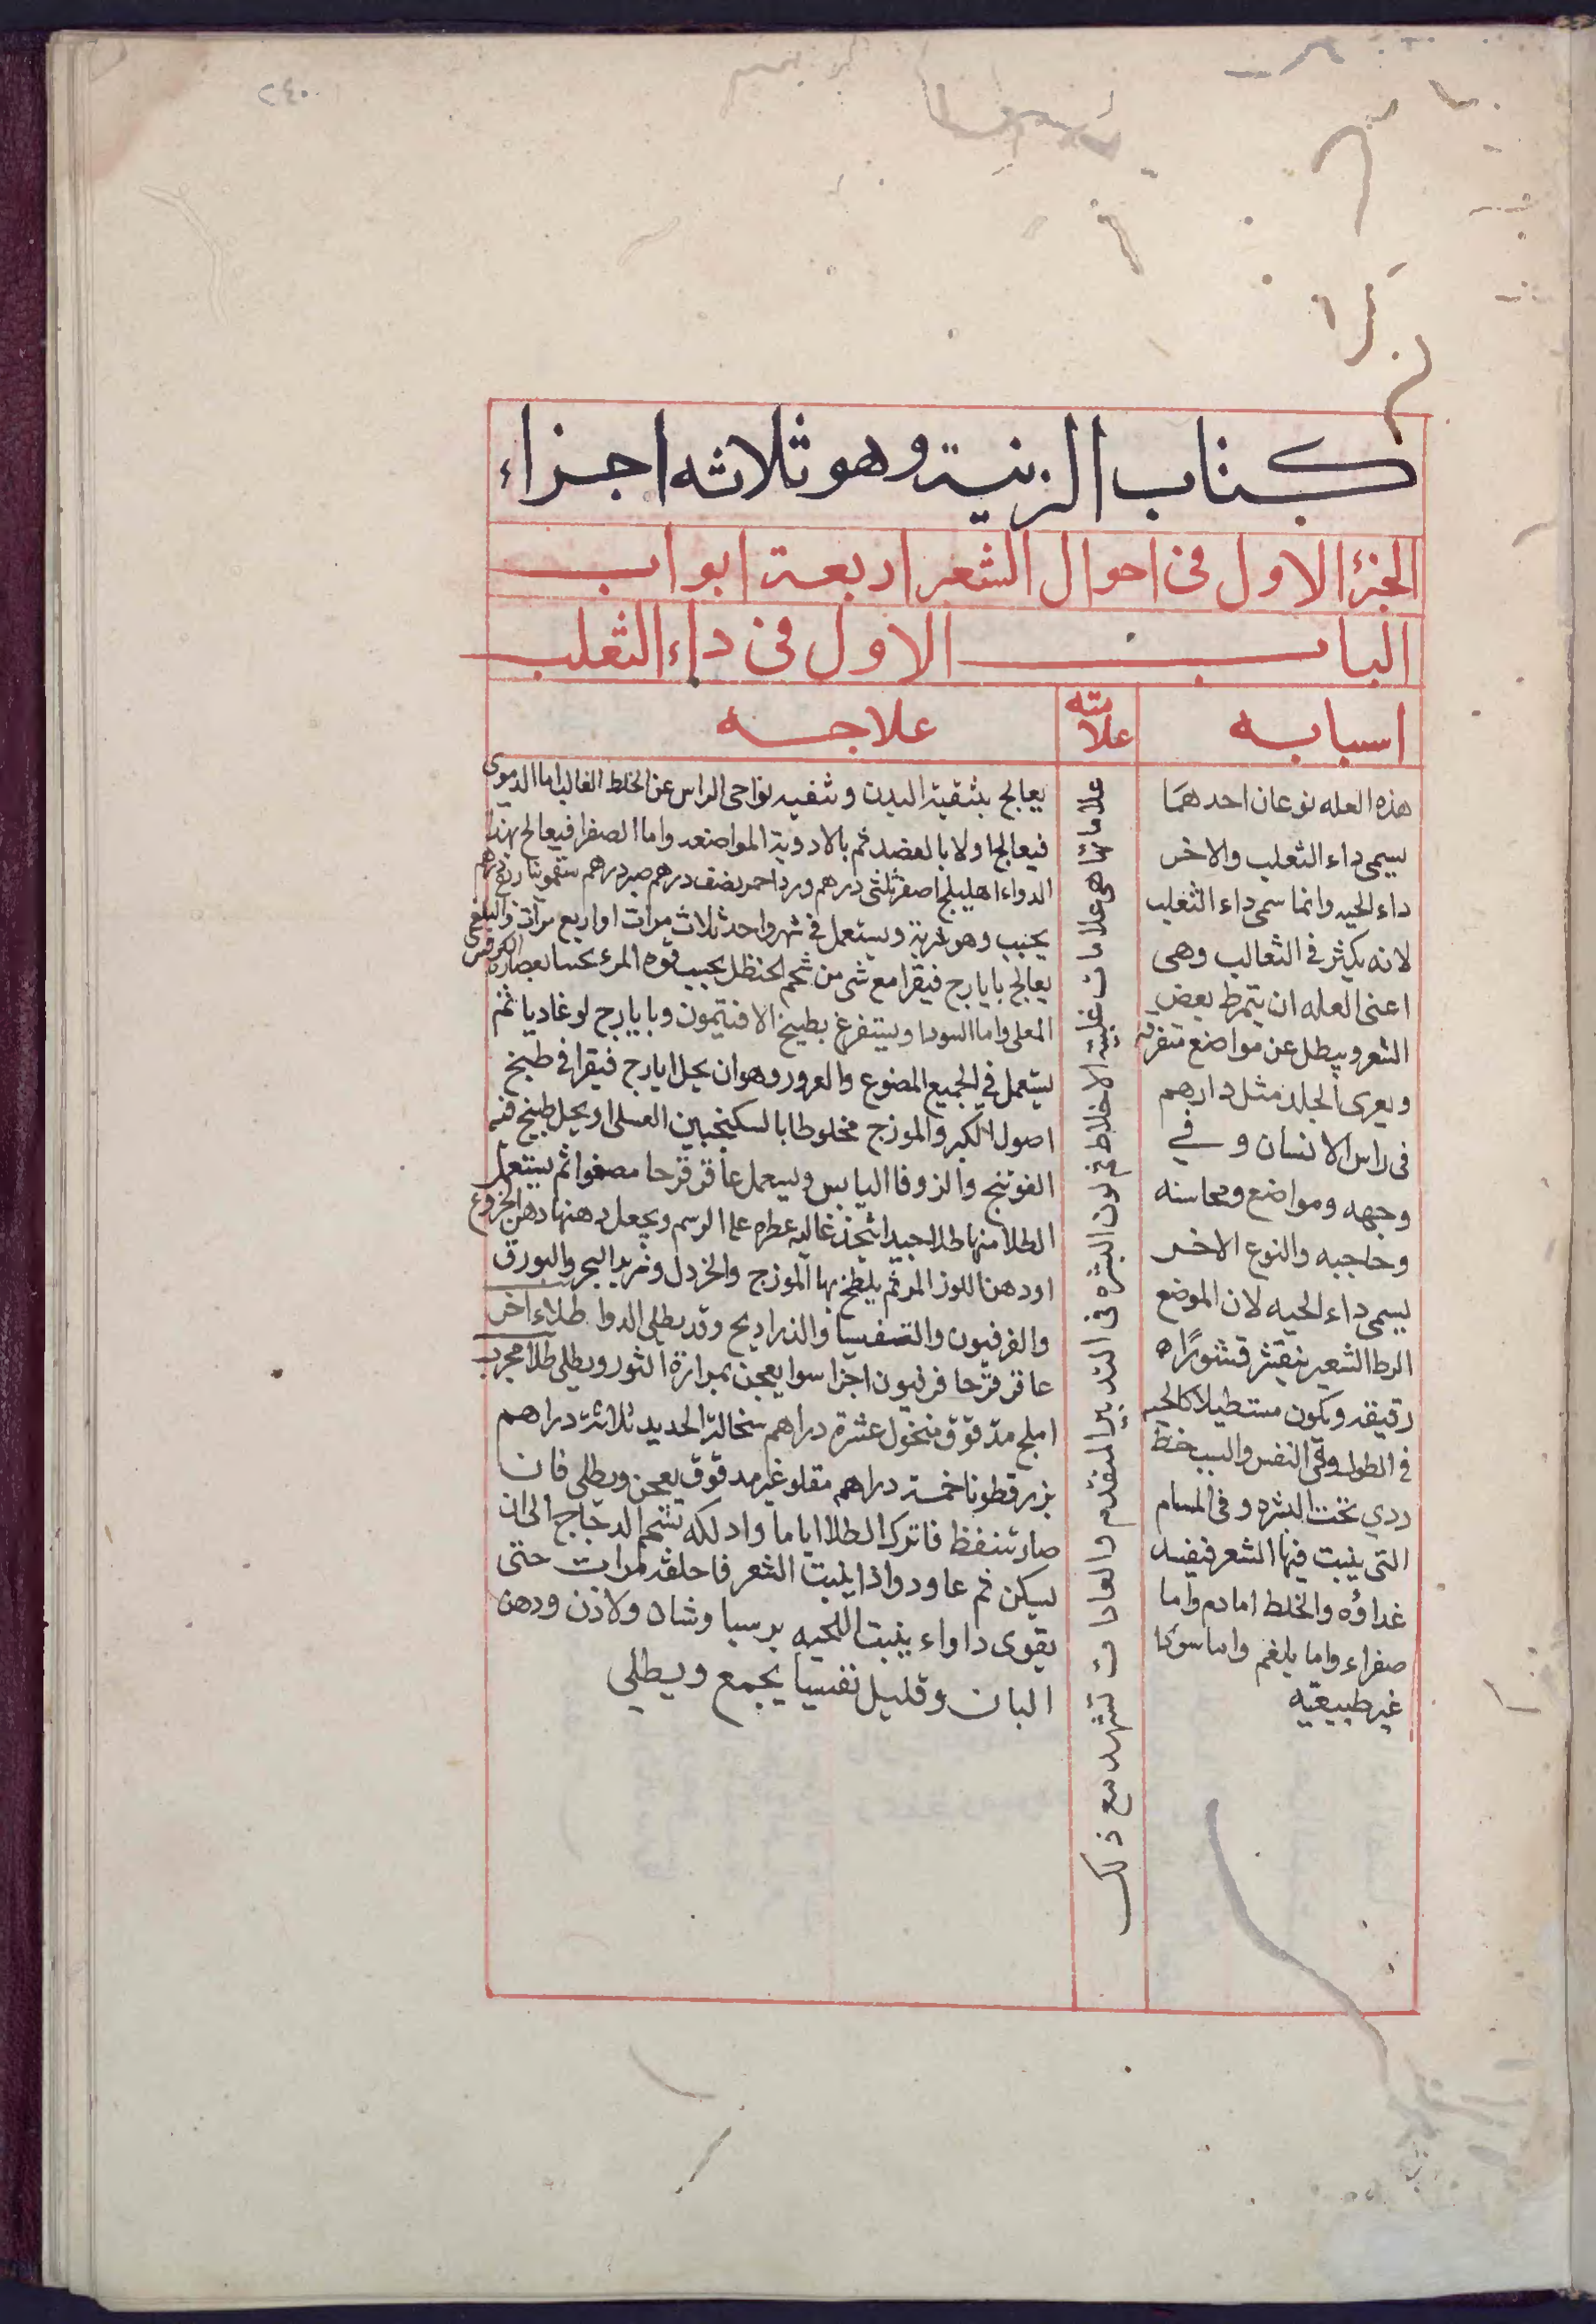 ٢٤٠
كتاب الزينة وهو ثلاثه اجزاء
الجزؤ الاول فى احوال الشعر اربعة ابواب
الباب الاول فى داء الثعلب
اسبابه
علامته
علاجه
هذه العله نوعان احدهما
يسمى داء الثعلب والاخر
داء الحيه وانما سمى داء الثعلب
لانه يكثر فى الثعالب وهى
اعنى العله ان يتمرط بعض
الشعر ويبطل عن مواضع متفرقه
ويعرى الجلد مثل دارهم
فى راس الانسان و فى
وجهه ومواضع ومحاسنه
وحاجبه والنوع الاخر
يسمى داء الحيه لان الموضع
الرط الشعير يتقشر قشورًا
رقيقه ويكون مستطيلا كالحيه
فى الطول وفى النفس والسبب خلط
ردي تحت البشره و فى المسام
التى ينبت فيها الشعر فيفسد
غداؤه والخلط اما دم واما
صفراء واما بلغم واما سودا
غير طبيعيه
علاماتها هى علامات غلبة الاخلاط فى لون البشره فى التدبير المتقدم والعادات تشهد مع ذلك
يعالج بتنقية البدن وتنقيه نواحى الراس عن الخلط الغالب اما الدموى
فيعالج اولا بالفصد ثم بالادوية المواضعه واما الصفرا فيعالج بهذا
الدواء اهليلج اصفر ثلثى درهم ورد احمر نصف درهم صبر درهم سقمونيا ربع درهم
يحبب وهو شربة ويستعمل فى شهر واحد ثلاث مرات او اربع مرات والبلغمى
يعالج بايارج فيقرا مع شى من شحم الحنظل يحبب قوه المرء بحسا بعصارة الكرفس
المعلى واما السودا ويستفرغ بطبيخ الافتيمون وبايارج لوغاديا ثم
يستعمل فى الجميع المصنوع والغرور وهو ان يحل ايارج فيقرا فى طبيخ
اصول الكبر والموزج مخلوطا بالسكنجبين العسلى او يحل طبيخ فيه
الفوتنج والزوفا اليابس ويسعمل عاقر قرحا مصفوا ثم يستعمل
الطلا منها طلا جيد يتخذ غاليه عطره على الرسم ويجعل دهنها دهن الخروع
او دهن اللوز المر ثم يلطخ بها الموزج والخردل وزبد البحر والبورق
والفرفيون والتنفسيا والذراريح وقد يطلى الدوا طلاء اخر
عاقر قرحا فرفيون اجزا سوا يعجن بمرارة الثور ويطلى طلا مجرب
املج مدقوق منخول عشرة دراهم سخالة الحديد ثلاثة دراهم
بزر قطونا خمسة دراهم مقلو غير مدقوق يعجن ويطلى فان
صار تنفظ فاترك الطلا اياما وادلكه بشحم الدجاج الى ان
يسكن ثم عاود واذا ينبت الشعر فاحلقه لمرات حتى
يقوى داواء ينبت اللحيه برسياوشان ولاذن ودهن
البان وقليل تفسيا يجمع ويطلى